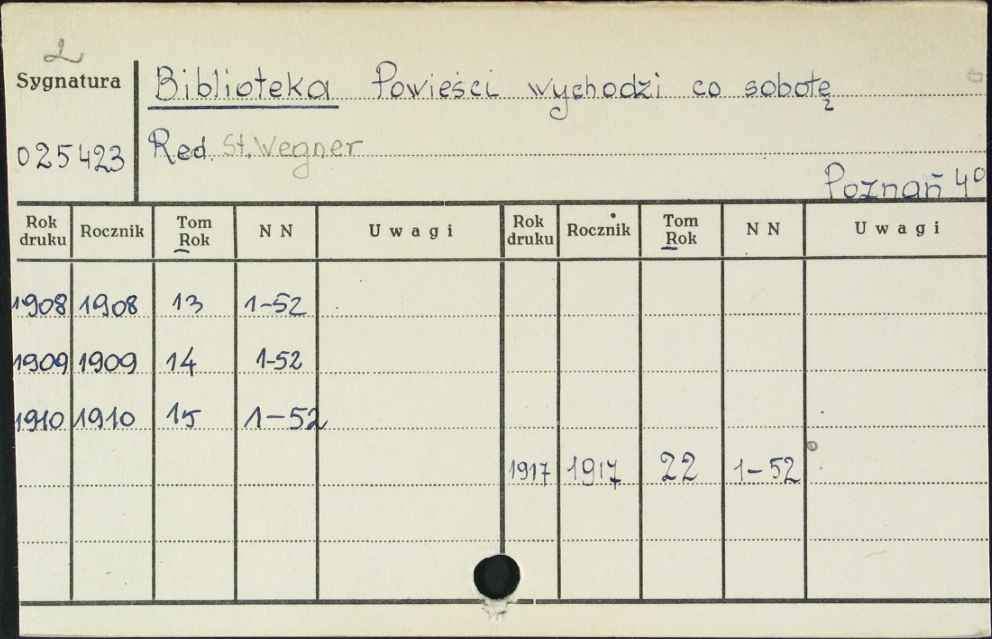 2
Sygnatura
Biblioteka Powieści wychodzi co sobotę
025423
Red. St. Wegner
Poznań 4°
Rok druku Rocznik Tom Rok N N Uwagi Rok druku Rocznik Tom Rok N N Uwagi
1908 1908 13 1-52
1909 1909 14 1-52
1910 1910 15 1-52
1917 1917 22 1-52